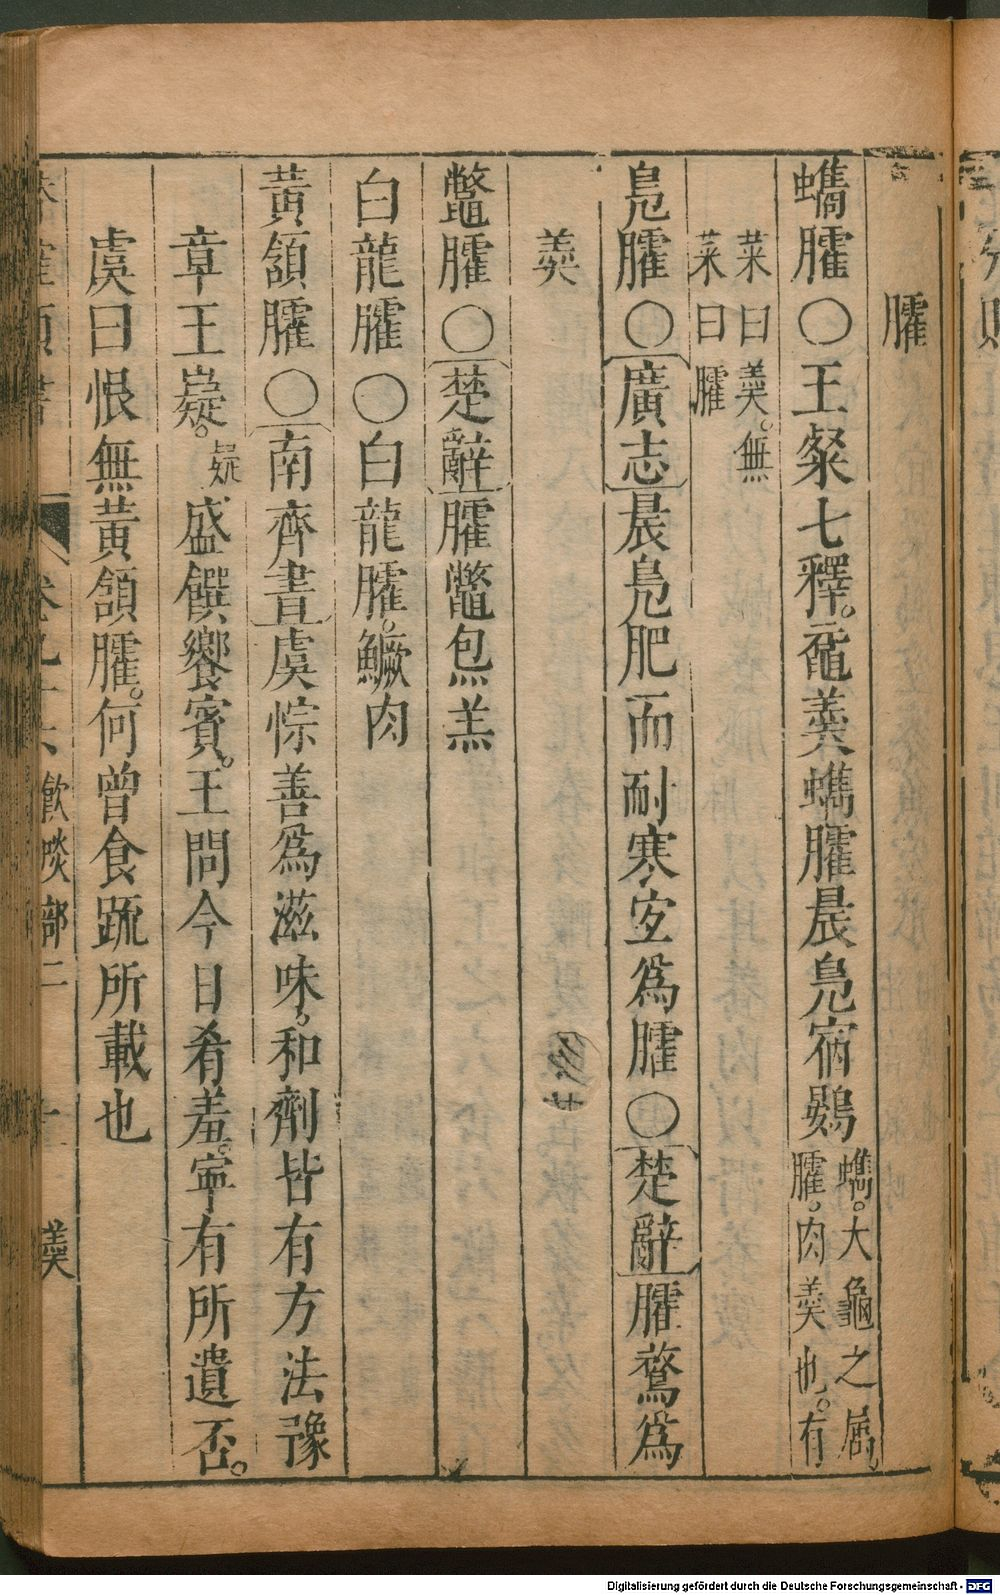 臛
蠵臛○王粲七釋。黿羹蠵臛晨鳧宿鷃蠵。大龜之屬。臛。肉羹也。有
菜曰羹。無菜曰臛
鳧臛○廣志晨鳧肥而耐寒宜爲臛○楚辭臛鶩爲
羹
鼈臛○楚辭臛鼈炰羔
白龍臛○白龍臛。鱖肉
黃頷臛○南齊書虞悰善爲滋味。和劑皆有方法豫
章王嶷。盛饌饗賓。王問今日肴羞。寧有所遺否。
虞曰恨無黃頷臛。何曾食疏所載也
卷九十六 飲啖部二 羹
Digitalisierung gefördert durch die Deutsche Forschungsgemeinschaft - DFG